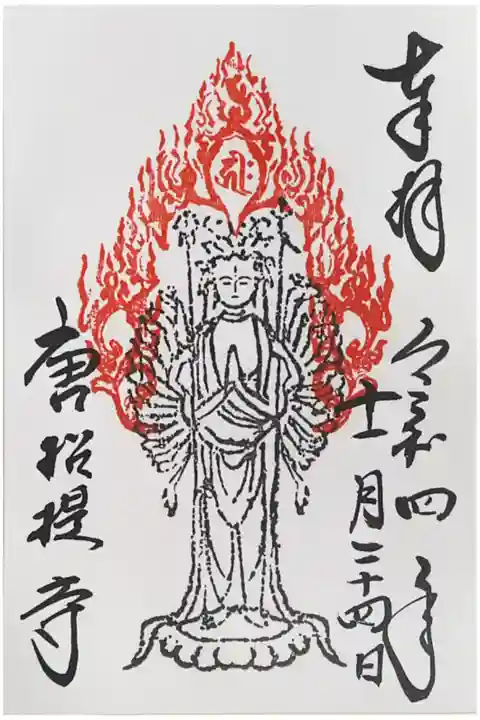 奉拝
令和四年
十一月二十四日
唐招提寺